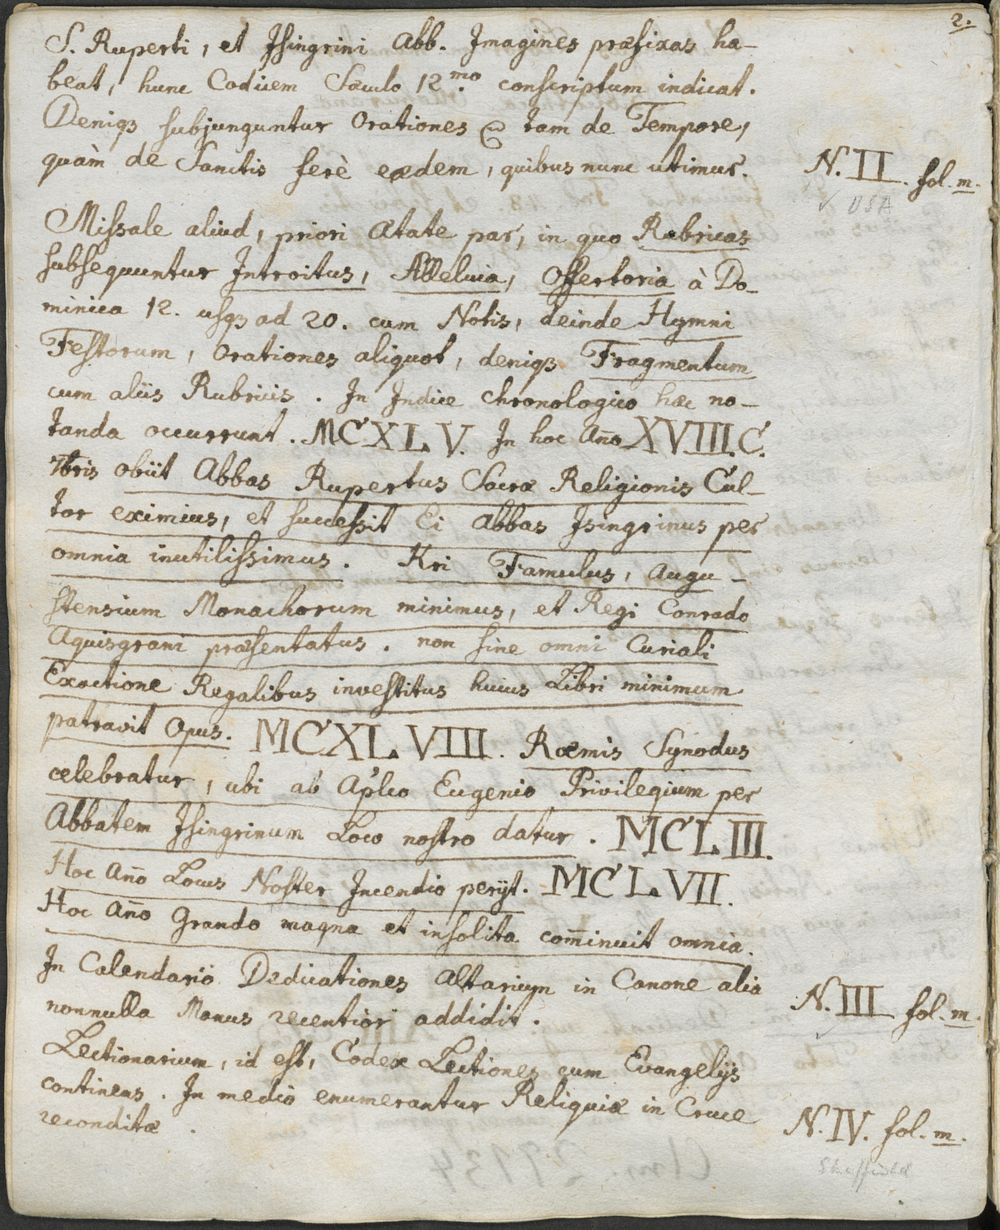 2.
S. Ruperti, et Jsingrini Abb. Jmagines præfixas ha-
beat, hunc Codicem Sæculo 12mo. conscriptum indicat.
Deniqȝ subjunguntur Orationes tam de Tempore,
quàm de Sanctis ferè eædem, quibus nunc utimur.
N. II. fol. m.
✓ USA
Missale aliud, priori Ætate par, in quo Rubricas
subsequuntur Introitus, Alleluia, Offertoria à Do-
minica 12. usqȝ ad 20. cum Notis, deinde Hymni
Festorum, Orationes aliquot, deniqȝ Fragmentum
cum aliis Rubricis. In Indice chronologico hæc no-
tanda occurrunt. MCXLV. In hoc Año XVIII.C.
7bris obiit Abbas Rupertus Sacræ Religionis Cul-
tor eximius, et successit Ei Abbas Isingrinus per
omnia inutilissimus. Xri Famulus, Augu-
stensium Monachorum minimus, et Regi Conrado
Aquisgrani præsentatus. non sine omni Curiali
Exactione Regalibus investitus huius Libri minimum
patravit Opus. MCXLVIII. Ræmis Synodus
celebratur, ubi ab Aplico Eugenio Privilegium per
Abbatem Jsingrinum Loco nostro datur. MCLIII.
Hoc Año Locus Noster Incendio perijt. MCLVII.
Hoc Año Grando magna et insolita com̄inuit omnia.
In Calendariö Dedicationes Altarium in Canone alia
nonnulla Manus recentior addidit.
N. III fol. m.
Lectionarium, id est, Codex Lectiones cum Evangelijs
continens. In medio enumerantur Reliquiæ in Cruce
reconditæ.
N. IV. fol. m.